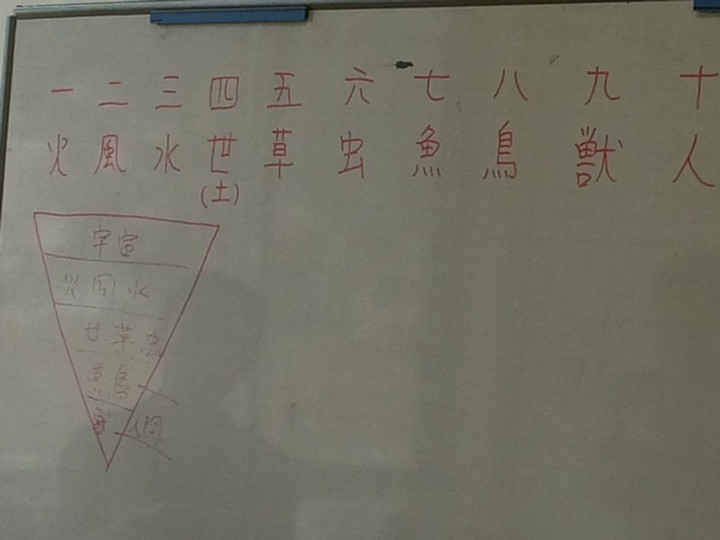 一 二 三 四 五 六 七 八 九 十
火 風 水 世 草 虫 魚 鳥 獣 人
(土)
宇宙
火 風 水
世 草 虫
魚 鳥
獣 人間